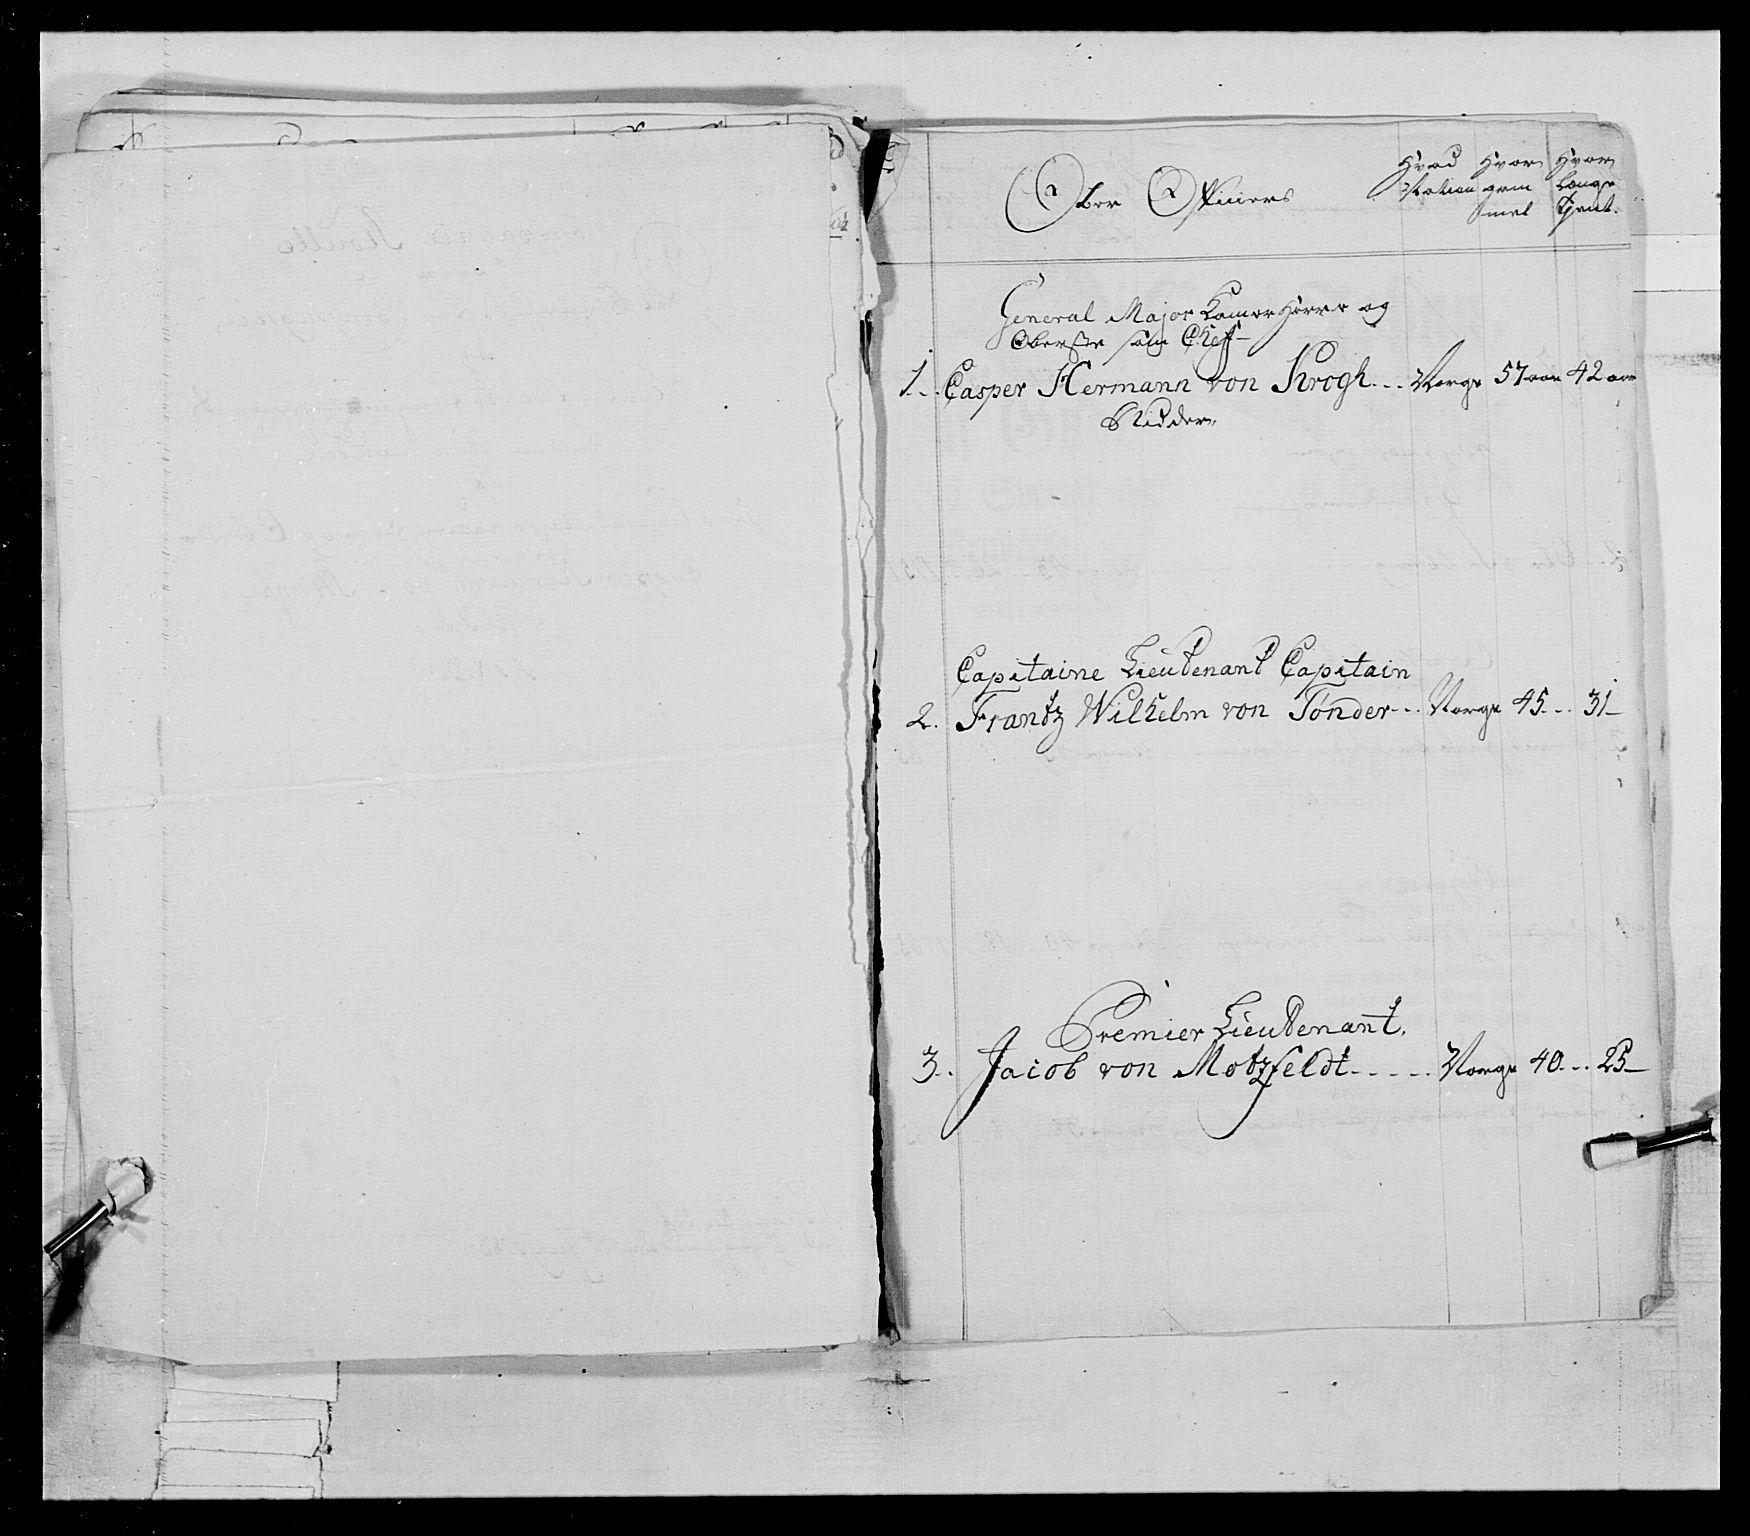 Ober Officiers
Hvad Nation
Hvor gam mel
Hvor længe tient.
General Major Kamer Herre og
Oberste som Cheff
1. Casper Hermann von Krogh... Norge 57 aar 42 aar
Ridder.
Capitaine Lieutenant Capitain
2. Frantz Wilhelm von Tonder... Norge 45... 31
Premier Lieutenant.
3. Jacob von Motzfeldt..... Norge 40... 25